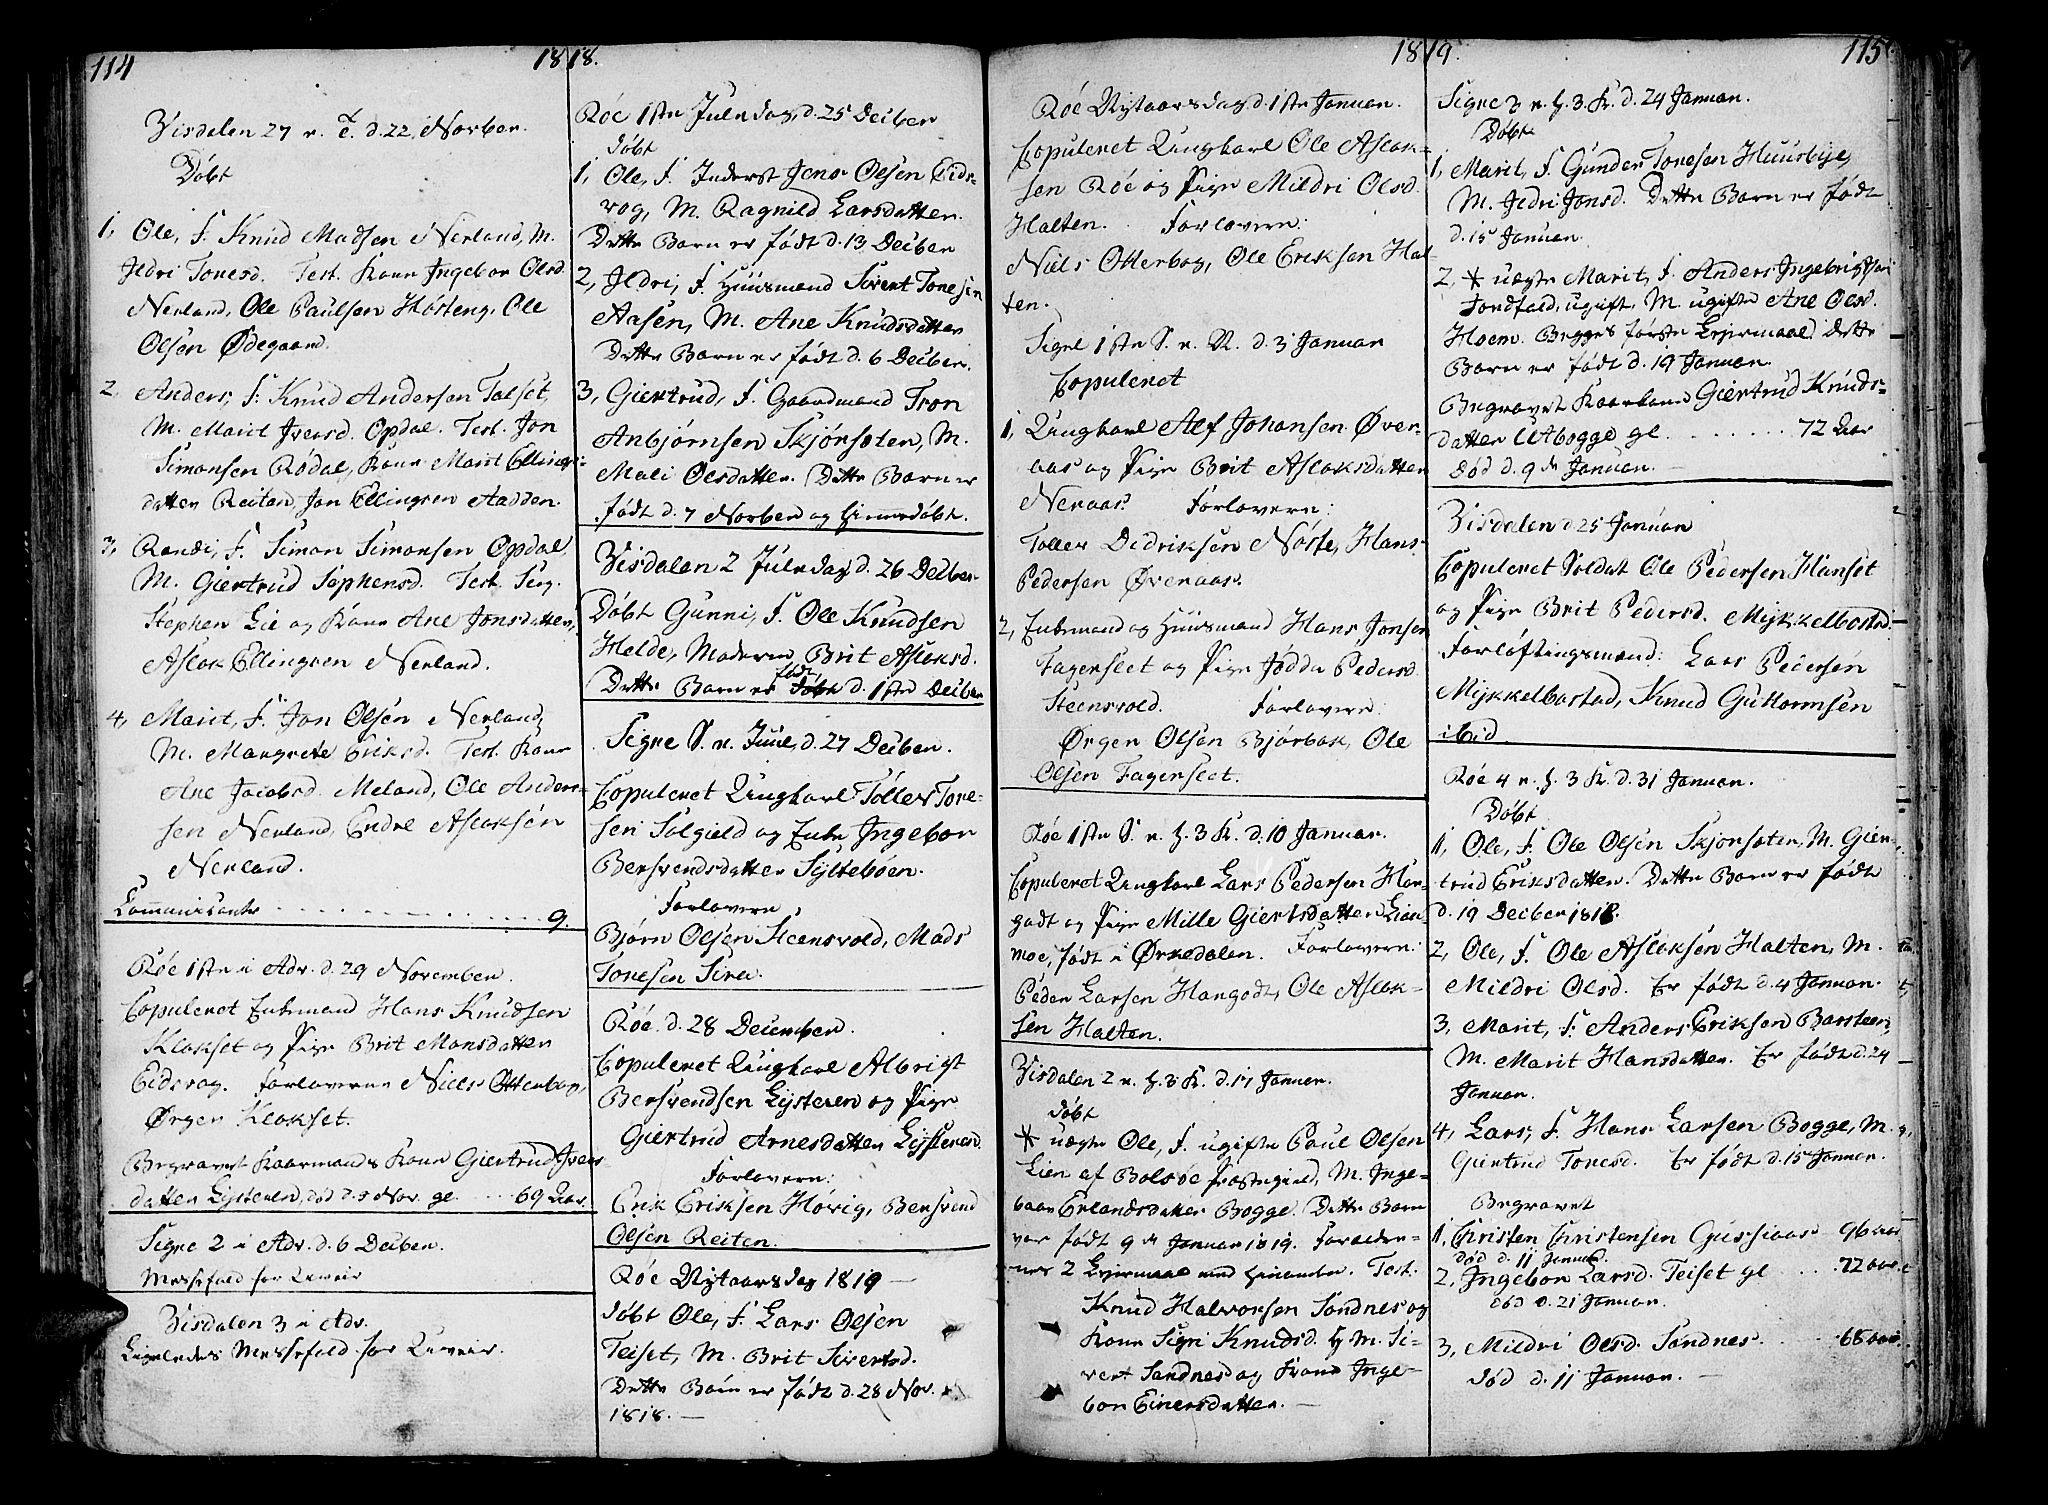 114
1818.
Visdalen 27 n. T. d. 22 Novber.
Døbt
1, Ole, F. Knud Madsen Nerland, M.
Jldri Tonesd. Test. Kone Ingebor Olsd.
Nerland, Ole Paulsen Høsteng, Ole
Olsen Ødegaard.
2, Anders, F. Knud Andersen Talset,
M. Marit Iversd. Opdal. Test. Jon
Simonsen Rødal, Kone Marit Ellings-
datter Reitan, Jon Ellingsen Aadden.
3, Randi, F. Simon Simonsen Opdal,
M. Giertrud Stephensd. Test. Serg.
Stephen Lie og Kone Ane Jonsdatter,
Aslak Ellingsen Nerland.
4, Marit, F. Jon Olsen Nerland,
M. Margrete Eriksd. Test. Kone
Ane Jacobsd. Meland, Ole Ander-
sen Nerland, Endre Aslaksen
Nerland.
Communicanter . . . . . . . . 9.
Røe 1ste i Adv. d. 29 November.
Copuleret Enkemand Hans Knudsen
Klokset og Pige Brit Monsdatter
Eidsvog. Forlovere Niels Otterbog,
Ørgen Klokset.
Begravet Kaarmands Kone Giertrud Ivers-
datter Lysteren, død d. 9 Nov. gl. . . . 69 Aar.
Signe 2 i Adv. d. 6 Decber.
Messefald for Uveir
Visdalen 3 i Adv.
Ligeledes Messefald for Uveir.
Røe 1ste Juledag, d. 25 Decber
Døbt
1, Ole, F. Inderst Jens Olsen Eids-
vog, M. Ragnild Larsdatter.
Dette Barn er født d. 13 Decber
2, Jldri, F. Huusmand Sivert Tonesen
Aasen, M. Ane Knudsdatter
Dette Barn er født d. 6 Decber.
3, Giertrud, F. Gaardmand Tron
Anbjørnsen Skjørsæten, M.
Mali Olsdatter. Dette Barn er
født d. 7 Novber og hiemmedøbt.
Visdalen 2 Juledag d. 26 Decber.
Døbt Gunni, F. Ole Knudsen
Helde, Moderen Brit Aslaksd.
født
Dette Barn er døbt d. 1ste Decber
Signe S. n. Juul, d. 27 Decber.
Copuleret Ungkarl Tøller Tone-
sen Solgield og Enke Ingebor
Bersvendsdatter Syltebøen.
Forlovere
Bjørn Olsen Steensvold, Mads
Tonesen Sira.
Røe d. 28 December.
Copuleret Ungkarl Albrigt
Bersvendsen Lysteren og Pige
Giertrud Arnesdatter Lysteren.
Forlovere:
Erik Eriksen Høvig, Bersvend
Olsen Reiten.
Røe Nytaarsdag 1819 —
Døbt Ole, F. Lars Olsen
Teiset, M. Brit Sivertsd.
Dette Barn er født d. 28 Nov.
1818. —
1819.
115
Røe Nytaarsdag d. 1ste Januar.
Copuleret Ungkarl Ole Aslak-
sen Røe og Pige Mildri Olsd.
Halten. Forlovere:
Niels Otterbog, Ole Eriksen Hal-
ten.
Signe 1ste S. n. N. d. 3 Januar
Copuleret
1, Ungkarl Alf Johansen Øver-
aas og Pige Brit Aslaksdatter
Neraas. Forlovere:
Toller Didriksen Nøste, Hans
Pedersen Øveraas.
2, Enkemand og Huusmand Hans Jonsen
Fagersleet og Pige Jødda Pedersd.
Steensvold. Forlovere:
Ørgen Olsen Bjørbak, Ole
Olsen Fagersleet.
Røe 1ste S. n. H. 3 K. d. 10 Januar.
Copuleret Ungkarl Lars Pedersen Han-
godt og Pige Mille Giertsdatter Lien-
moe, født i Ørkedalen. Forlovere:
Peder Larsen Hangodt, Ole Aslak-
sen Halten.
Visdalen 2 n. H. 3 K. d. 17 Januar.
Døbt
* uægte Ole, F. ugifte Paul Olsen
Lien af Bolsøe Præstegield, M. Inge-
baar Erlandsdatter Bogge. Dette Barn
var født 9de Januar 1819. Forældre-
nes 2 Leiermaal med hinanden. Test.
Knud Halvorsen Sandnes og
Kone Signi Knudsd. H. M. Si-
vert Sandnes og Kone Inge-
bor Einersdatter. —
Signe 3 n. H. 3 K. d. 24 Januar.
Døbt
1, Marit, F. Gunder Tonesen Huusbye,
M. Jldri Jonsd. Dette Barn er født
d. 15 Januar.
2, * uægte Marit, F. Anders Ingebrigtsen
Tordfald, ugift, M. ugifte Ane Olsd.
Hoem. Begges første Leiermaal. Dette
Barn er født d. 19 Januar.
Begravet Kaarkone Giertrud Knuds-
datter Utbogge gl. . . . . . 72 Aar
død d. 9de Januar. —
Visdalen d. 25 Januar
Copuleret Soldat Ole Pedersen Hanset
og Pige Brit Pedersd. Mykkelbostad.
Forløftingsmænd: Lars Pedersen
Mykkelbostad, Knud Guttormsen
ibid.
Røe 4 n. H. 3 K. d. 31 Januar.
Døbt
1, Ole, F. Ole Olsen Skjørsæten, M. Gier-
trud Eriksdatter. Dette Barn er født
d. 19 Decber 1818.
2, Ole, F. Ole Aslaksen Halten, M.
Mildri Olsd. Er født d. 4 Januar.
3, Marit, F. Anders Eriksen Barsteen,
M. Marit Hansdatter. Er født d. 24
Januar.
4, Lars, F. Hans Larsen Bogge, M.
Giertrud Tonesd. Er født d. 15 Januar.
Begravet
1, Christen Christensen Gussiaas 96 aar
død d. 11 Januar.
2, Ingebor Larsd. Teiset gl . . . 72 aar.
død d. 21 Januar.
3, Mildri Olsd. Sandnes . . . 68 aar.
død d. 11 Januar. —